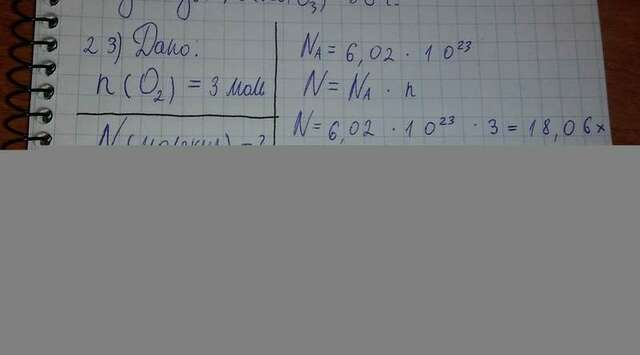 23) Дано:
n(O₂) = 3 моль
N(молекул) = ?
Nᴀ = 6,02 · 10²³
N = Nᴀ · n
N = 6,02 · 10²³ · 3 = 18,06 ×